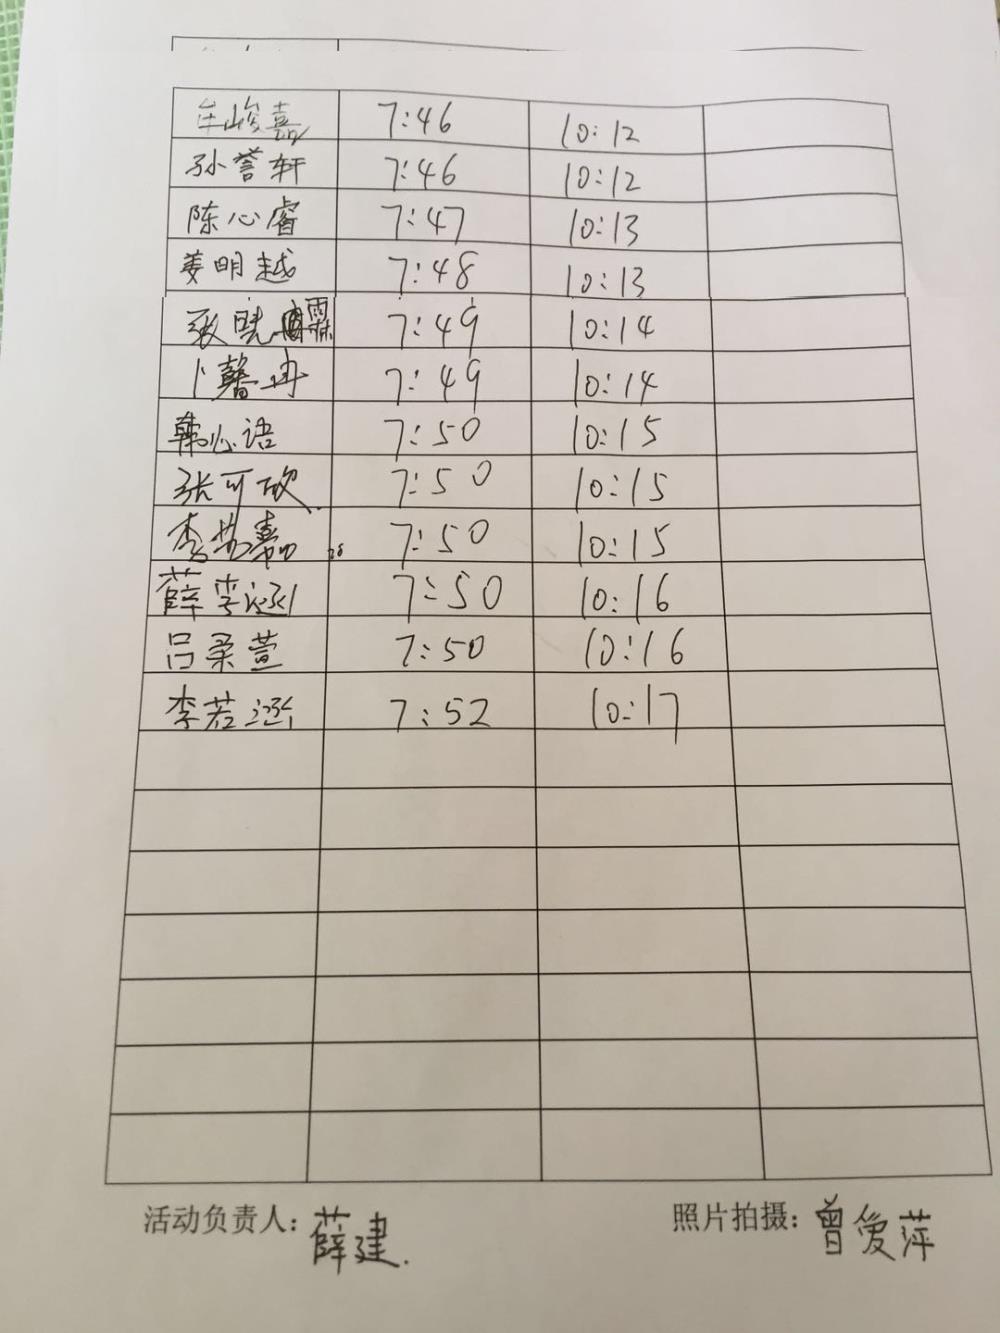 牟峻嘉 7:46 10:12
孙誉轩 7:46 10:12
陈心睿 7:47 10:13
姜明越 7:48 10:13
张晓霖 7:49 10:14
卜馨冉 7:49 10:14
韩心语 7:50 10:15
张可欣 7:50 10:15
李 嘉 7:50 10:15
薛李涵 7:50 10:16
吕柔萱 7:50 10:16
李若涵 7:52 10:17
活动负责人：薛建. 照片拍摄：曾爱萍